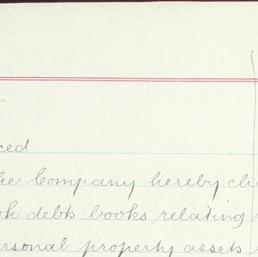 ced
he Company hereby ch
ok debts books relating
ersonal property assets